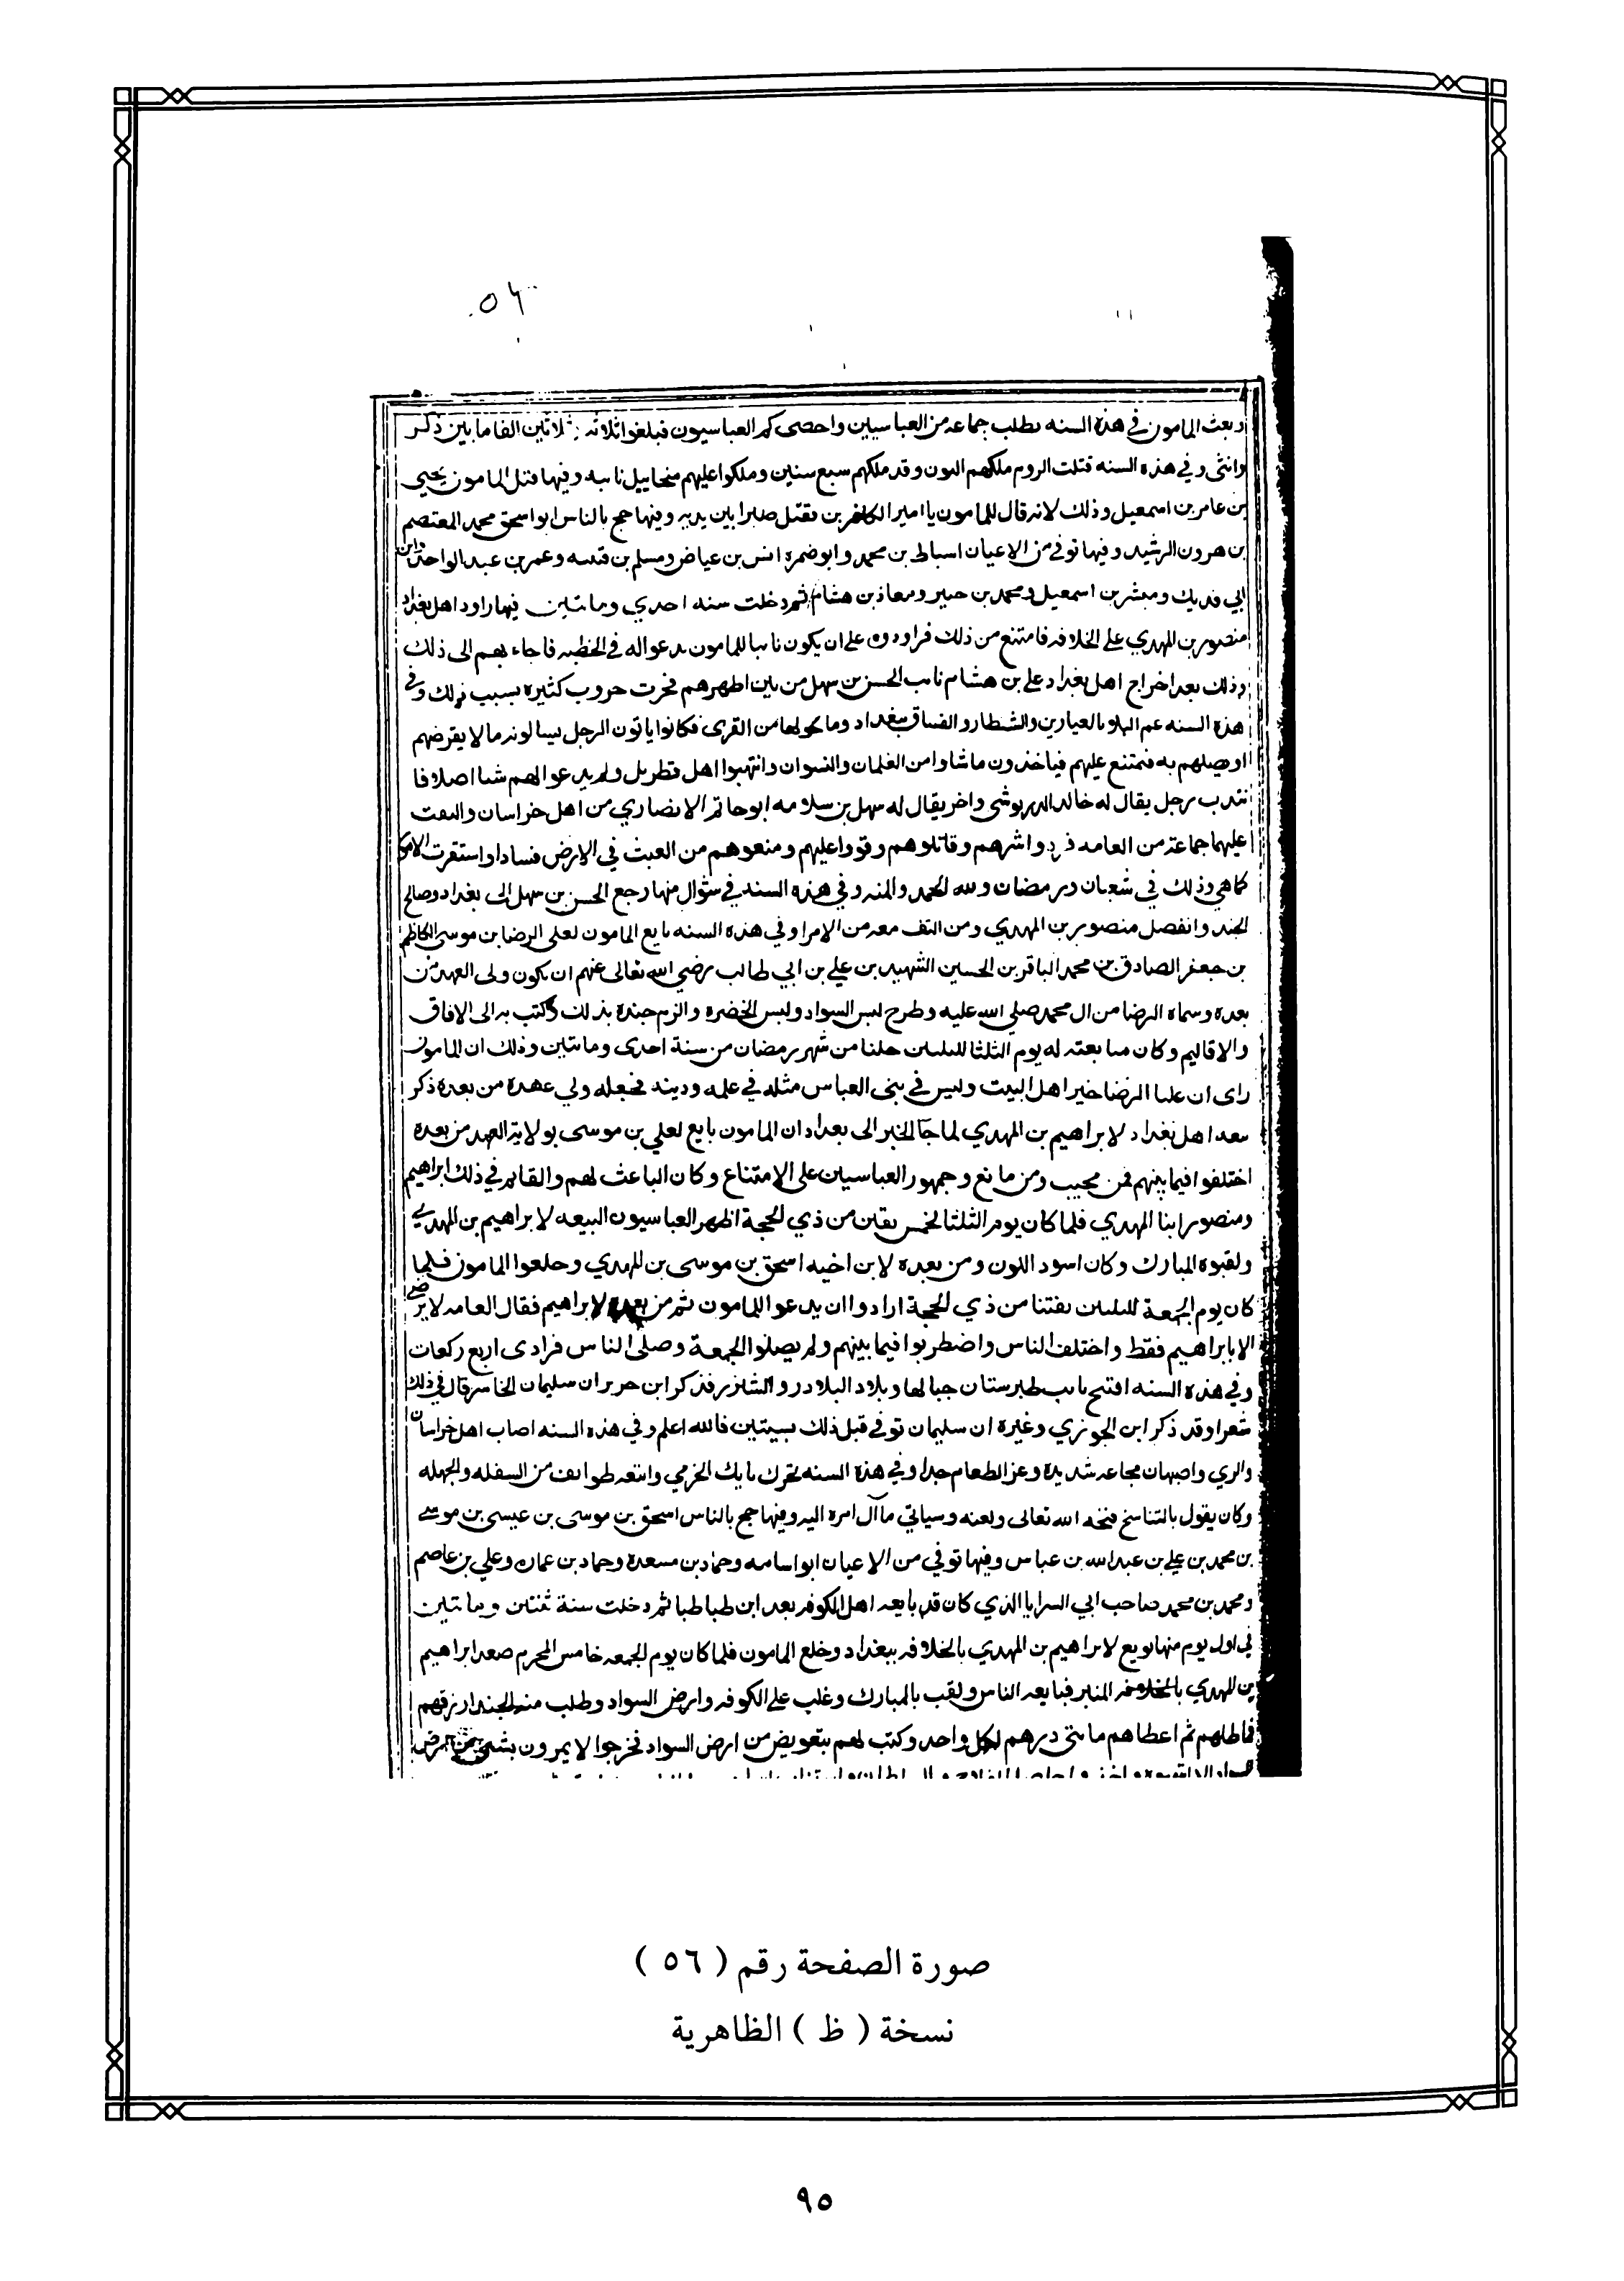 ٥٦
وبعث المامون في هذه السنه يطلب جماعه من العباسيين واحصى كم العباسيون فبلغوا ثلاثه وثلاثين الفا ما بين ذكر
وانثى وفي هذه السنه قتلت الروم ملكهم اليون وقد ملكهم سبع سنين وملكوا عليهم ميخاييل نايبه وفيها قتل المامون يحيى
بن عامر بن اسمعيل وذلك لانه قال للمامون يا امير الكافرين فقتل صبرا بين يديه وفيها حج بالناس ابو اسحق محمد المعتصم
بن هرون الرشيد وفيها توفي من الاعيان اسباط بن محمد وابو ضمره انس بن عياض ومسلم بن قتيبه وعمر بن عبد الواحد وابن
ابي فديك ومبشر بن اسمعيل ومحمد بن حمير ومعاذ بن هشام ثم دخلت سنه احدي ومايتين فيها راود اهل بغداد
منصور بن المهدي على الخلافه فامتنع من ذلك فراودوه على ان يكون نايبا للمامون يدعوا له في الخطبه فاجابهم الى ذلك
وذلك بعد اخراج اهل بغداد علي بن هشام نايب الحسن بن سهل من بين اظهرهم فجرت حروب كثيره بسبب ذلك وفي
هذه السنه عم البلا بالعيارين والشطار والفساق ببغداد وما حولها من القرى فكانوا ياتون الرجل يسالونه مالا يقرضهم
او يصلهم به فيمتنع عليهم فياخذون ما شاوا من الغلمان والنسوان وانتهبوا اهل قطربل ولم يدعوا لهم شيا اصلا فا
نتدب رجل يقال له خالد الدريوشي واخر يقال له سهل بن سلامه ابو حاتم الانصاري من اهل خراسان والتفت
عليهما جماعة من العامه فردوا شرهم وقاتلوهم وقووا عليهم ومنعوهم من العبث في الارض فسادا واستقرت الامور
كما هي وذلك في شعبان ورمضان ولله الحمد والمنه وفي هذه السنه في شوال منها رجع الحسن بن سهل الى بغداد وصالح
الجند وانفصل منصور بن المهدي ومن التف معه من الامرا وفي هذه السنه بايع المامون لعلي الرضا بن موسى الكاظم
بن جعفر الصادق بن محمد الباقر بن الحسين الشهيد بن علي بن ابي طالب رضي الله تعالى عنهم ان يكون ولى العهد من
بعده وسماه الرضا من ال محمد صلي الله عليه وطرح لبس السواد ولبس الخضره والزم جنده بذلك وكتب به الى الافاق
والاقاليم وكان مبايعته له يوم الثلثا لليلتين خلتا من شهر رمضان من سنة احدى ومايتين وذلك ان المامون
راى ان عليا الرضا خير اهل البيت وليس في بني العباس مثله في علمه ودينه فجعله ولي عهده من بعده ذكر
بيعه اهل بغداد لابراهيم بن المهدي لما جآ الخبر الى بغداد ان المامون بايع لعلي بن موسى بولاية العهد من بعده
اختلفوا فيما بينهم فمن مجيب ومن مانع وجمهور العباسيين على الامتناع وكان الباعث لهم والقايم في ذلك ابراهيم
ومنصور ابنا المهدي فلما كان يوم الثلثا لخمس بقين من ذي الحجة اظهر العباسيون البيعه لابراهيم بن المهدي
ولقبوه المبارك وكان اسود اللون ومن بعده لابن اخيه اسحق بن موسى بن المهدي وخلعوا المامون فلما
كان يوم الجمعة لليلتين بقتا من ذي الحجة ارادوا ان يدعوا للمامون ثم من بعده لابراهيم فقال العامه لا نرضي
الا بابراهيم فقط واختلف الناس واضطربوا فيما بينهم ولم يصلوا الجمعة وصلى الناس فرادى اربع ركعات
وفي هذه السنه افتتح نايب طبرستان جبالها وبلاد البلادر والشازر فذكر ابن حرير ان سليمان الخاسر قال في ذلك
شعرا وقد ذكر ابن الجوزي وغيره ان سليمان توفي قبل ذلك بسنتين فالله اعلم وفي هذه السنه اصاب اهل خراسان
والري واصبهان مجاعه شديدة وعز الطعام جدا وفي هذه السنه تحرك بابك الخرمي واتبعه طوايف من السفله والجهله
وكان يقول بالتناسخ قبحه الله تعالى ولعنه وسياتي مآال امره اليه وفيها حج بالناس اسحق بن موسى بن عيسى بن موسى
بن محمد بن علي بن عبد الله بن عباس وفيها توفي من الاعيان ابو اسامه وحماد بن مسعدة وحماد بن عمان وعلي بن عاصم
ومحمد بن محمد صاحب ابي السرايا الذي كان قد بايعه اهل الكوفه بعد ابن طباطبا ثم دخلت سنة ثنتين ومايتين
في اول يوم منها بويع لابراهيم بن المهدي بالخلافه ببغداد وخلع المامون فلما كان يوم الجمعه خامس المحرم صعد ابراهيم
بن المهدي المنابر فبايعه الناس ولقب بالمبارك وغلب على الكوفه وارض السواد وطلب منه الجند ارزقهم
فماطلهم ثم اعطاهم مايتي درهم لكل واحد وكتب لهم بتعويض من ارض السواد فخرجوا لا يمرون بشي
صورة الصفحة رقم ( ٥٦ )
نسخة ( ظ ) الظاهرية
٩٥